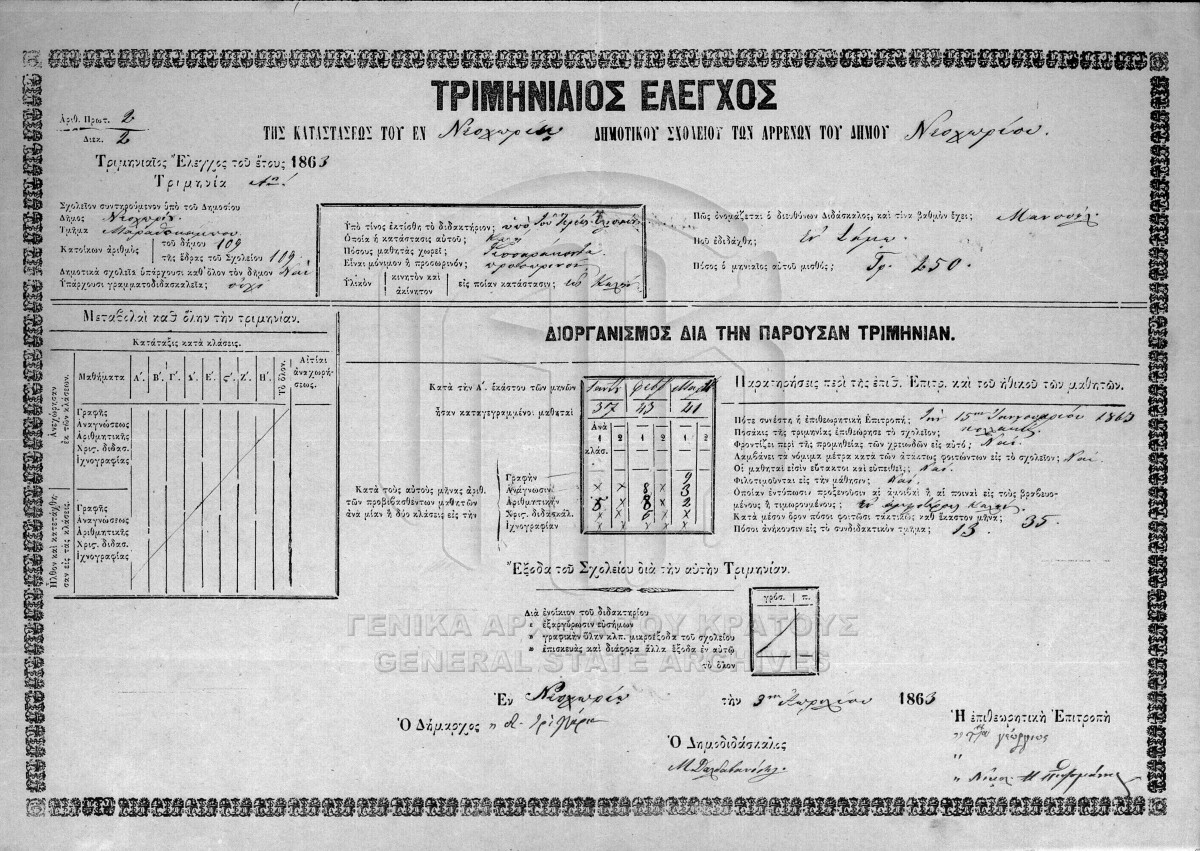 ΤΡΙΜΗΝΙΑΙΟΣ ΕΛΕΓΧΟΣ
Ἀριθ. Πρωτ. 2
Διεκ. 2
ΤΗΣ ΚΑΤΑΣΤΑΣΕΩΣ ΤΟΥ ΕΝ Νεοχωρίῳ ΔΗΜΟΤΙΚΟΥ ΣΧΟΛΕΙΟΥ ΤΩΝ ΑΡΡΕΝΩΝ ΤΟΥ ΔΗΜΟΥ Νεοχωρίου.
Τριμηνιαῖος Ἔλεγχος τοῦ ἔτους 1863
Τριμηνία Αη!
Σχολεῖον συντηρούμενον ὑπὸ τοῦ Δημοσίου
Δῆμος Νεοχωρίου
Τμῆμα Μαραθοκάμπου
Κατοίκων ἀριθμὸς τοῦ δήμου 109
τῆς ἕδρας τοῦ Σχολείου 109
Δημοτικὰ σχολεῖα ὑπάρχουσι καθ' ὅλον τὸν δῆμον
Ὑπάρχουσι γραμματοδιδασκαλεῖα; οὐχὶ
Ὑπὸ τίνος ἐκτίσθη τὸ διδακτήριον; ὑπὸ τοῦ
Ὁποία ἡ κατάστασις αὐτοῦ; Καλὴ
Πόσους μαθητὰς χωρεῖ; Τεσσαράκοντα
Εἶναι μόνιμον ἢ προσωρινόν; προσωρινὸν
Ὑλικὸν κινητὸν καὶ ἀκίνητον εἰς ποίαν κατάστασιν; εἰς Καλήν
Πῶς ὀνομάζεται ὁ διευθύνων Διδάσκαλος, καὶ τίνα βαθμὸν ἔχει; Μανουὴλ
Ποῦ ἐδιδάχθη; ἐν Σάμῳ.
Πόσος ὁ μηνιαῖος αὐτοῦ μισθός; Γρ. 250.
Μεταβολαὶ καθ' ὅλην τὴν τριμηνίαν.
Κατάταξις κατὰ κλάσεις.
Μαθήματα Α΄. Β΄. Γ΄. Δ΄. Ε΄. ς΄. Ζ΄. Η΄. Τὸ ὅλον. Αἰτίαι ἀναχωρήσεως.
Ἀνεχώρησαν ἐκ τῶν κλάσεων.
Γραφῆς
Ἀναγνώσεως
Ἀριθμητικῆς
Χρις. διδασ.
Ἰχνογραφίας
Ἦλθον καὶ κατετάχθησαν εἰς τὰς κλάσεις.
Γραφῆς
Ἀναγνώσεως
Ἀριθμητικῆς
Χρις. διδασ.
Ἰχνογραφίας
ΔΙΟΡΓΑΝΙΣΜΟΣ ΔΙΑ ΤΗΝ ΠΑΡΟΥΣΑΝ ΤΡΙΜΗΝΙΑΝ.
Κατὰ τὴν Α΄. ἑκάστου τῶν μηνῶν Ἰαν Φεβρ Μαρτ
ἦσαν καταγεγραμμένοι μαθηταὶ 37 43 41
Ἀνὰ
1 2 1 2 1 2
κλάσ.
Κατὰ τοὺς αὐτοὺς μῆνας ἀριθ.
τῶν προβιβασθέντων μαθητῶν
ἀνὰ μίαν ἢ δύω κλάσεις εἰς τὴν
Γραφὴν 9
Ἀνάγνωσιν × × 8 × 3
Ἀριθμητικὴν 5 × 8 × 2
Χρις. διδασκάλ. × × 6 × ×
Ἰχνογραφίαν × × × × ×
Παρατηρήσεις περὶ τῆς ἐπιθ. Ἐπιτρ. καὶ τοῦ ἠθικοῦ τῶν μαθητῶν.
Πότε συνέστη ἡ ἐπιθεωρητικὴ Ἐπιτροπή; τὴν 15ην Ἰανουαρίου 1863
Ποσάκις τῆς τριμηνίας ἐπιθεώρησε τὸ σχολεῖον; πολλάκις
Φροντίζει περὶ τῆς προμηθείας τῶν χρειωδῶν εἰς αὐτό; Ναί.
Λαμβάνει τὰ νόμιμα μέτρα κατὰ τῶν ἀτάκτως φοιτώντων εἰς τὸ σχολεῖον; Ναί
Οἱ μαθηταὶ εἰσὶν εὔτακτοι καὶ εὐπειθεῖς; Ναί.
Φιλοτιμοῦνται εἰς τὴν μάθησιν; Ναί.
Ὁποίαν ἐντύπωσιν προξενοῦσιν αἱ ἀμοιβαὶ ἢ αἱ ποιναὶ εἰς τοὺς βραβευομένους
ἢ τιμωρουμένους;
Κατὰ μέσον ὅρον πόσοι φοιτῶσι τακτικῶς καθ' ἕκαστον μῆνα; 35.
Πόσοι ἀνήκουσιν εἰς τὸ συνδιδακτικὸν τμῆμα; 13
Ἔξοδα τοῦ Σχολείου διὰ τὴν αὐτὴν Τριμηνίαν.
γρόσ. π.
Διὰ ἐνοίκιον τοῦ διδακτηρίου
» ἐξαργύρωσιν εὐσήμων
» γραφικὴν ὕλην κλπ. μικροέξοδα τοῦ σχολείου
» ἐπισκευὰς καὶ διάφορα ἄλλα ἔξοδα ἐν αὐτῷ
τὸ ὅλον
ΓΕΝΙΚΑ ΑΡΧΕΙΑ ΤΟΥ ΚΡΑΤΟΥΣ
GENERAL STATE ARCHIVES
Ἐν Νεοχωρίῳ τὴν 3ην Ἀπριλίου 1863
Ὁ Δήμαρχος
Ὁ Δημοδιδάσκαλος
Ἡ ἐπιθεωρητικὴ Ἐπιτροπὴ
γεώργιος